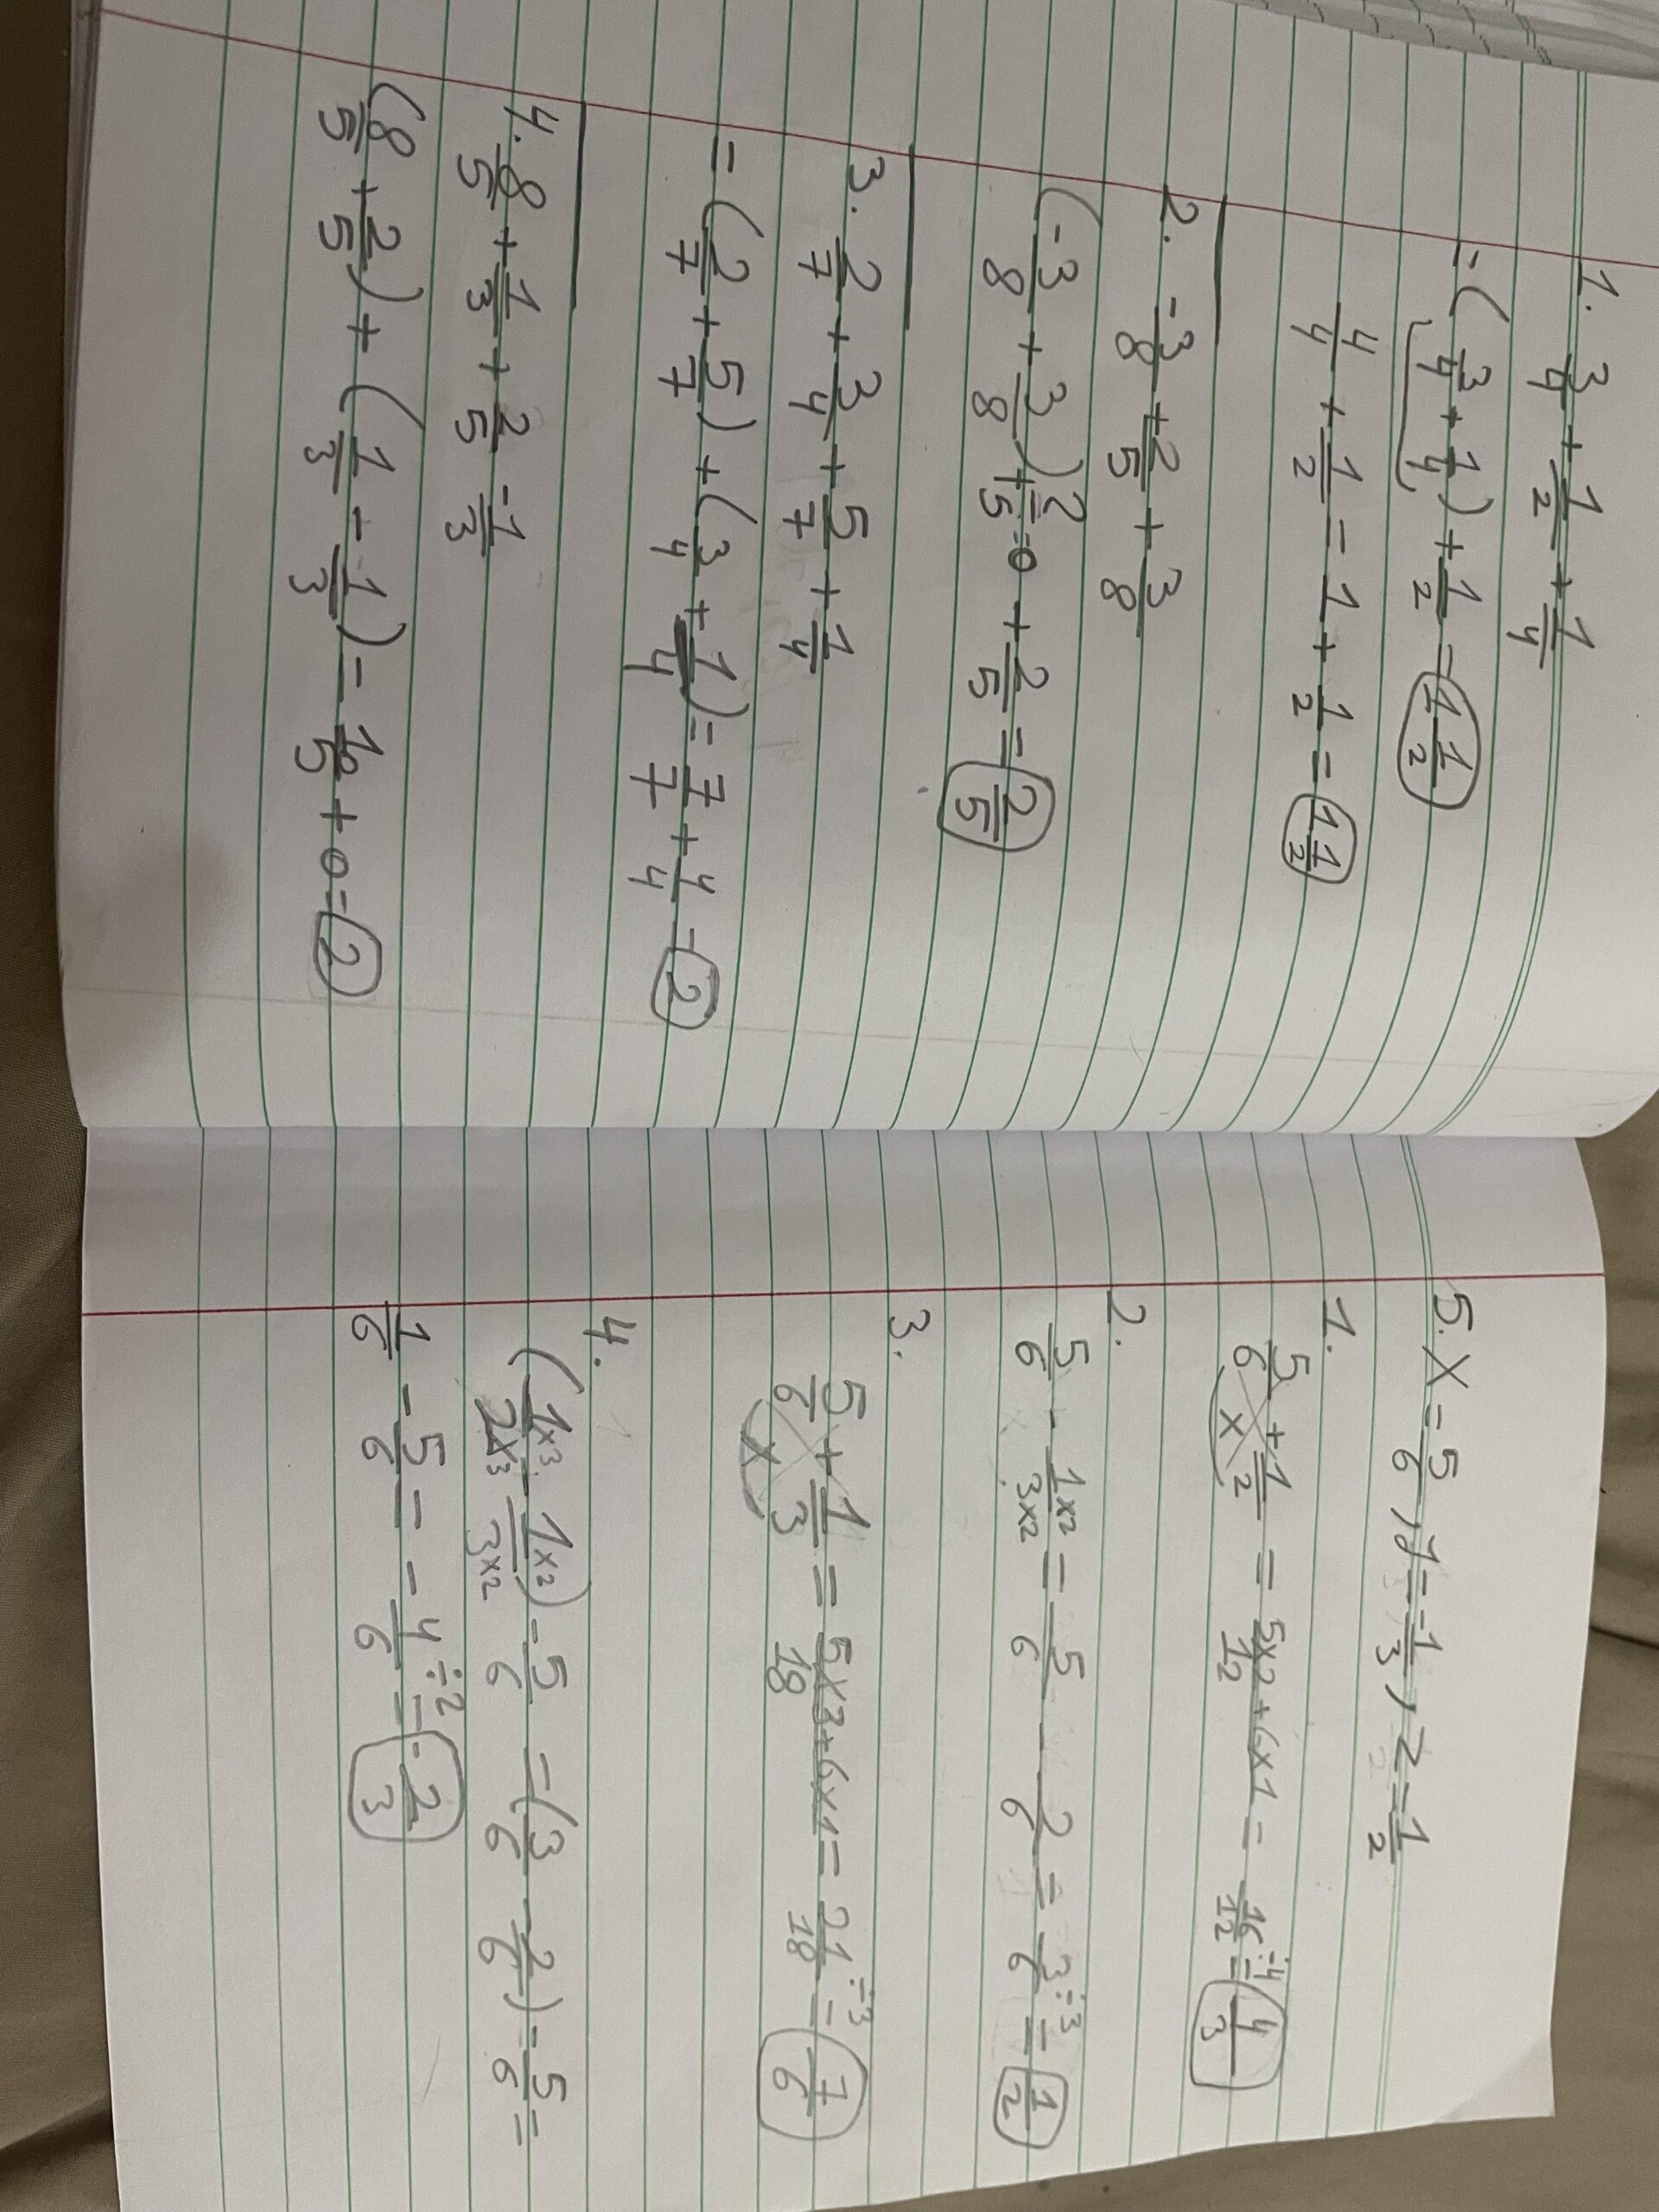 1. 3/4 + 1/2 + 1/4
= (3/4 + 1/4) + 1/2 = 1 1/2
4/4 + 1/2 = 1 + 1/2 = 1 1/2
2. -3/8 + 2/5 + 3/8
(-3/8 + 3/8) + 2/5 = 0 + 2/5 = 2/5
3. 2/7 + 3/4 + 5/7 + 1/4
= (2/7 + 5/7) + (3/4 + 1/4) = 7/7 + 4/4 = 2
4. 8/5 + 1/3 + 2/5 - 1/3
(8/5 + 2/5) + (1/3 - 1/3) = 10/5 + 0 = 2
5. X = 5/6, y = 1/3, z = 1/2
1. 5/6 + 1/2 = 5x2+6x1/12 = 16/12 ÷4 = 4/3
x
2. 5/6 - 1x2/3x2 = 5/6 - 2/6 = 3/6 ÷3 = 1/2
3. 5/6 + 1/3 = 5x3+6x1/18 = 21/18 ÷3 = 7/6
x
4. (1x3/2x3 - 1x2/3x2) - 5/6 = (3/6 - 2/6) = 5/6 =
1/6 - 5/6 = - 4/6 ÷2 = - 2/3